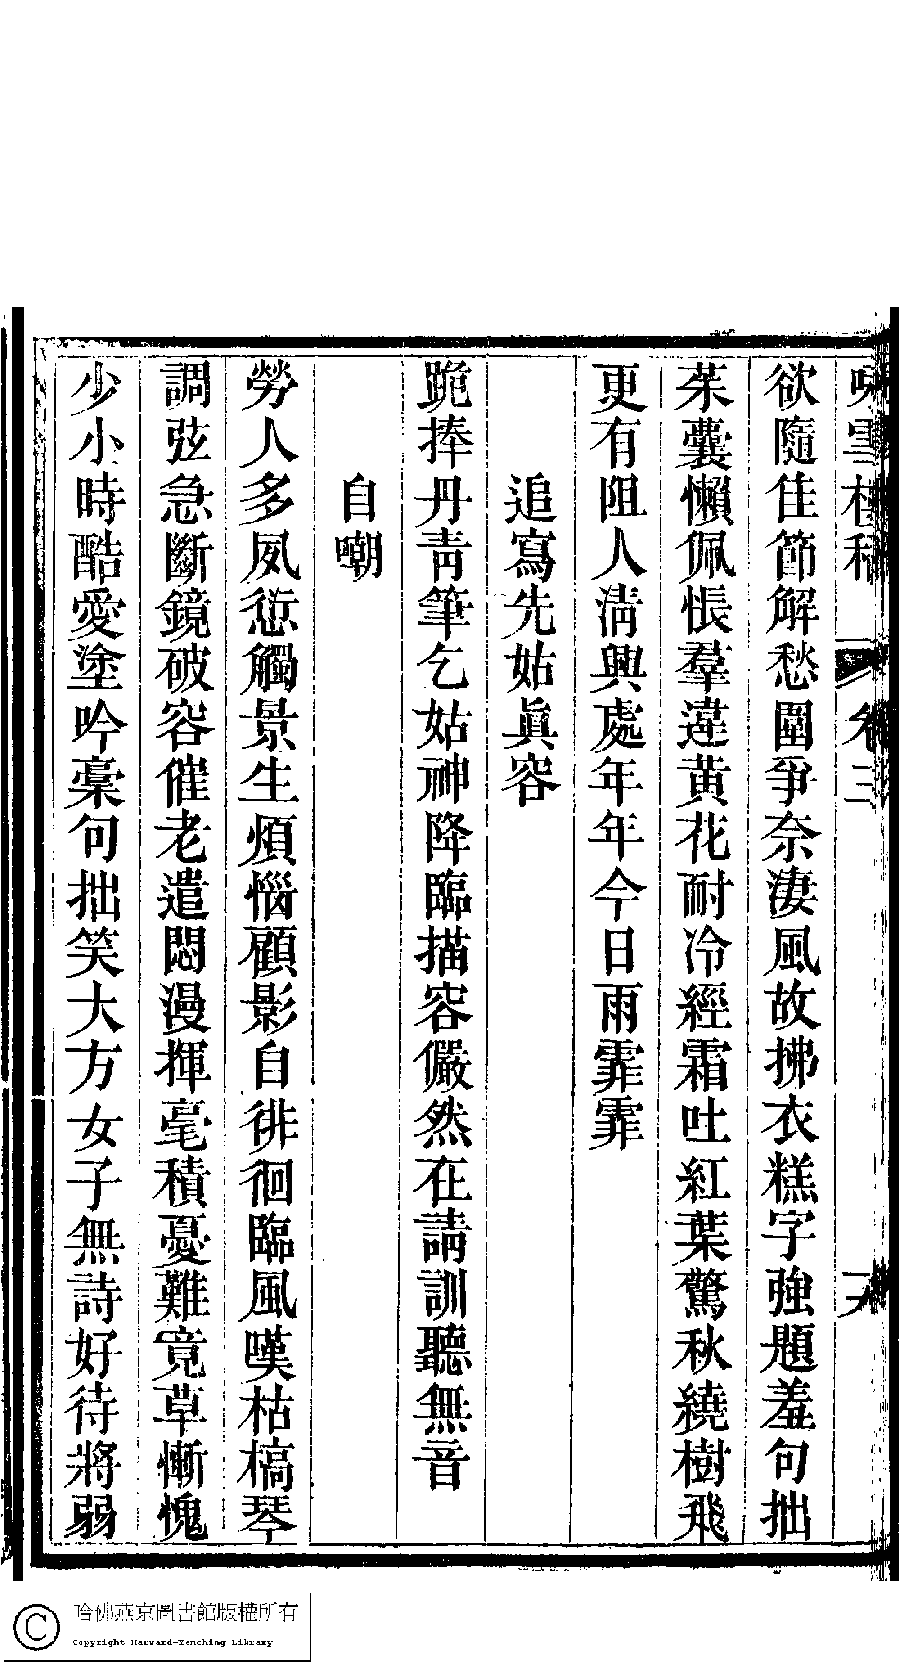 欲隨佳節解愁圍爭奈淒風故拂衣糕字強題羞句拙
茱囊懶佩悵羣違黄花耐冷經霜吐紅葉驚秋繞樹飛
更有阻人清興處年年今日雨霏霏
追寫先姑眞容
跪捧丹青筆乞姑神降臨描容儼然在請訓聽無音
自嘲
勞人多夙愆觸景生煩惱顧影自徘徊臨風嘆枯槁琴
調弦急斷鏡破容催老遣悶漫揮毫積憂難竟草慚愧
少小時酷愛塗吟稾句拙笑大方女子無詩好待將弱
哈佛燕京圖書館版權所有
Copyright Harvard-Yenching Library